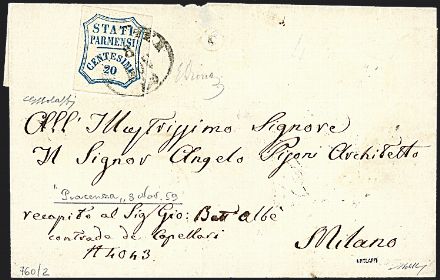 STATI
PARMENSI
CENTESIMI
20
All' Illustrissimo Signore
Il Signor Angelo Pizoni Architetto
"Piacenza" 3 Nov. 59
recapito al Sig. Gio: Batt. Albè
contrada de Capellari
N 4043
Milano
760/2